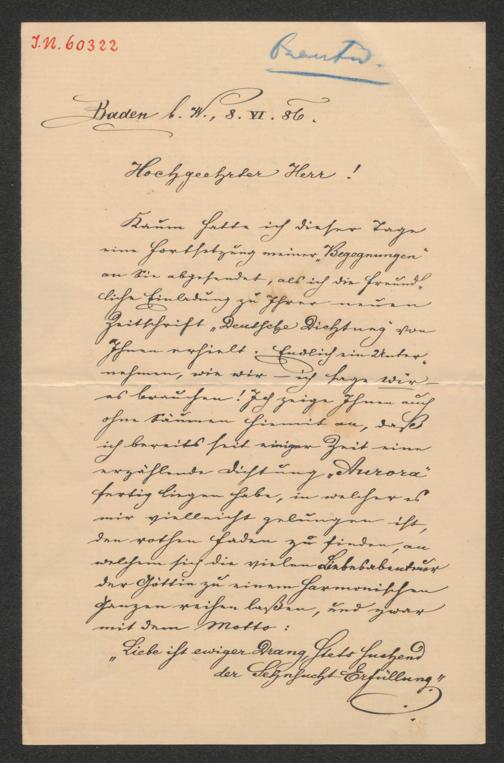 I.N. 60322
Baden b. W., 8. VI. 86.
Hochgeehrter Herr!
Kaum hatte ich dieser Tage
eine Fortsetzung meiner „Begegnungen“
an Sie abgesendet, als ich die freund-
liche Einladung zu Ihrer neuen
Zeitschrift „Deutsche Dichtung“ von
Ihnen erhielt. Endlich ein Unter-
nehmen, wie wir – ich sage wir –
es brauchen! Ich zeige Ihnen auch
ohne Säumen hiemit an, daß
ich bereits seit einiger Zeit eine
erzählende Dichtung „Aurora“
fertig liegen habe, in welcher es
mir vielleicht gelungen ist,
den rothen Faden zu finden, an
welchem sich die vielen Liebesabenteuer
der Göttin zu einem harmonischen
Ganzen reihen laßen, und zwar
mit dem Motto:
„Liebe ist ewiger Drang, stets suchend
der Sehnsucht Erfüllung.“